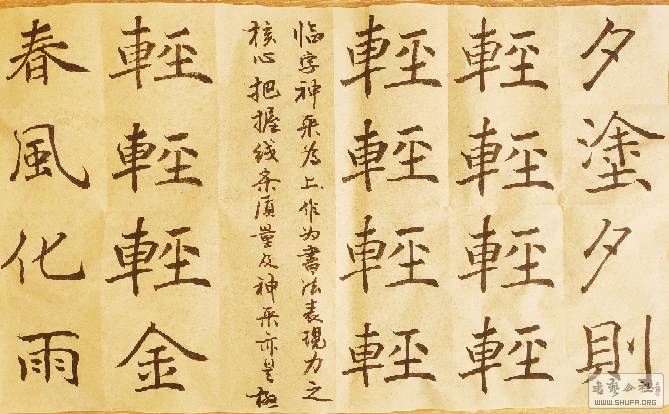 夕塗夕則
輕輕輕輕
輕輕輕輕
临字神采为上作为書法表現力之
核心把握线条质量及神采亦是极
輕輕輕金
春風化雨
书艺公社
WWW.SHUFA.ORG